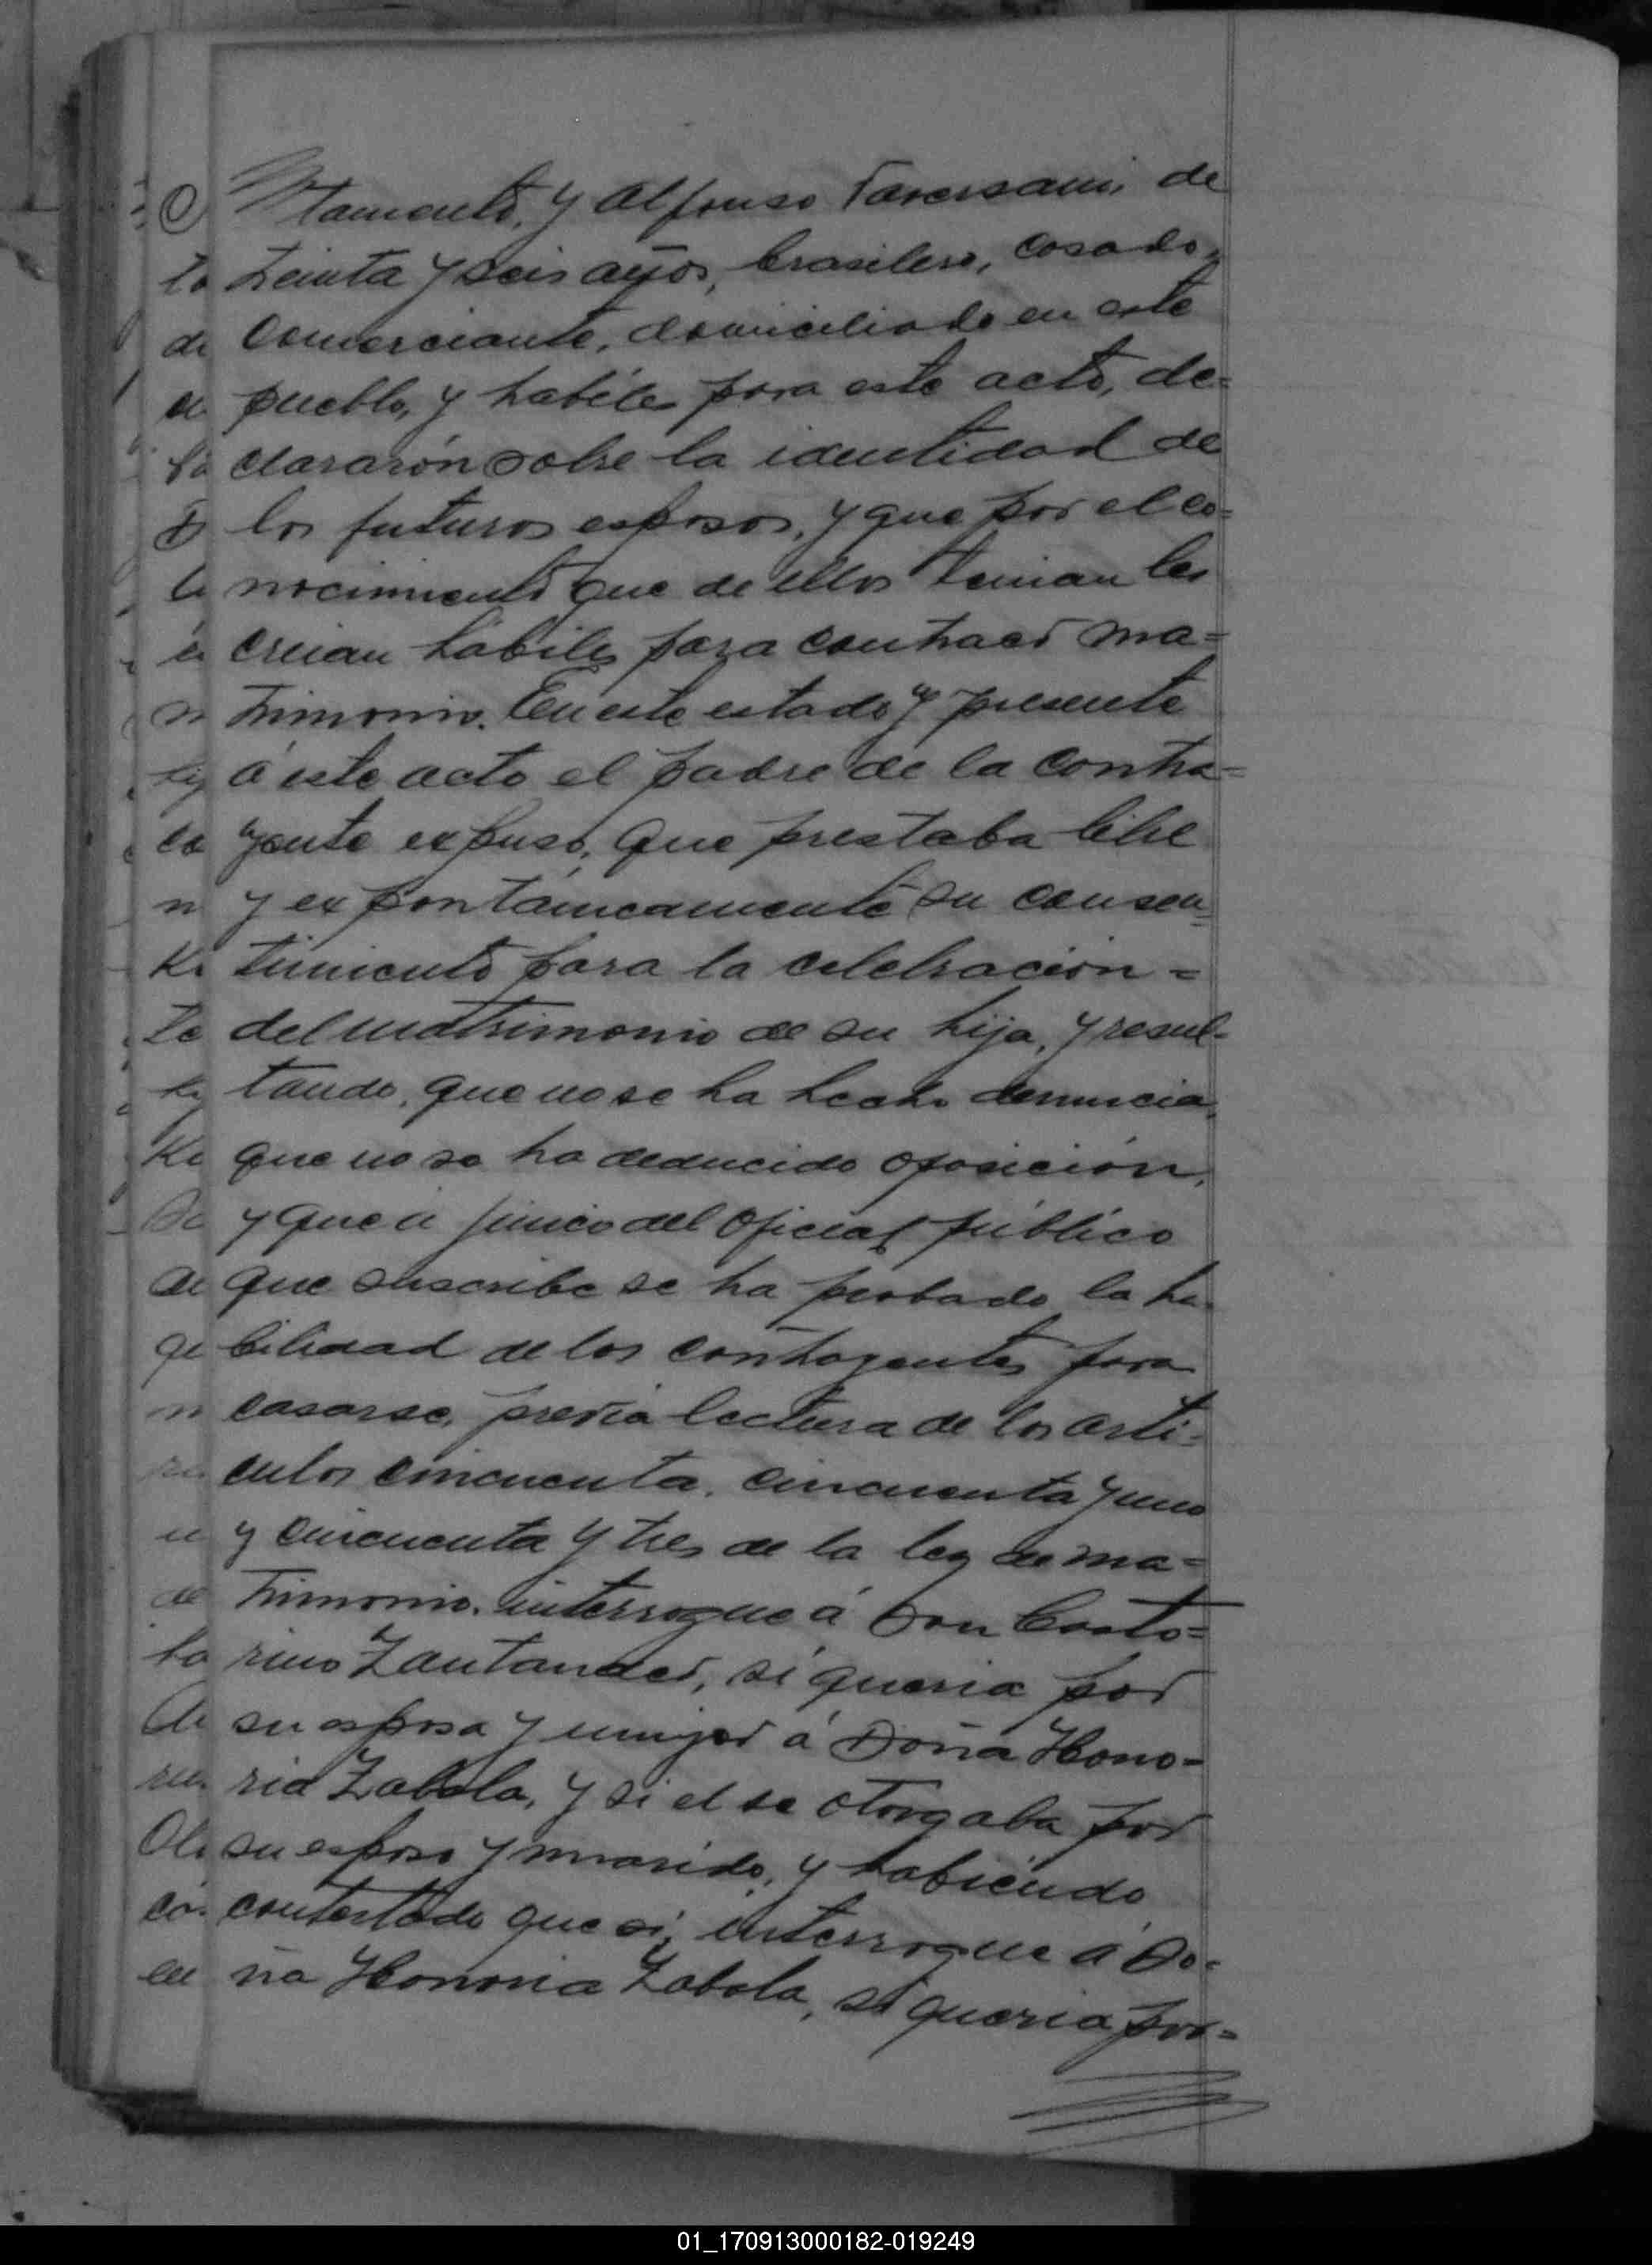 tamento, y Alfonso Taversani, de
treinta y seis años, brasilero, casado,
comerciante, domiciliado en este
pueblo, y habiles para este acto, de=
clararón sobre la identidad de
los futuros esposos, y que por el co=
nocimiento que de ellos tenian los
creian hábiles para contraer ma=
trimonio. En este estado y presente
á este acto el padre de la contra=
yente expuso, que prestaba libre
y expontáneamente su consen=
timiento para la celebración =
del matrimonio de su hija, y resul=
tando, que no se ha hecho denuncia,
que no se ha deducido oposición,
y que á juicio del oficial público
que suscribe se ha probado la ha=
bilidad de los contrayentes para
casarse, previa lectura de los arti=
culos cincuenta, cincuenta y uno
y cincuenta y tres de la ley de ma=
trimonio, interrogue á Don Casto=
rino Zantander, si queria por
su esposa y mujer á Doña Hono=
ria Zabala, y si el se otorgaba por
su esposo y marido, y habiendo
contestado que si, interrogue á Do=
ña Honoria Zabala, si queria por=
01_170913000182-019249